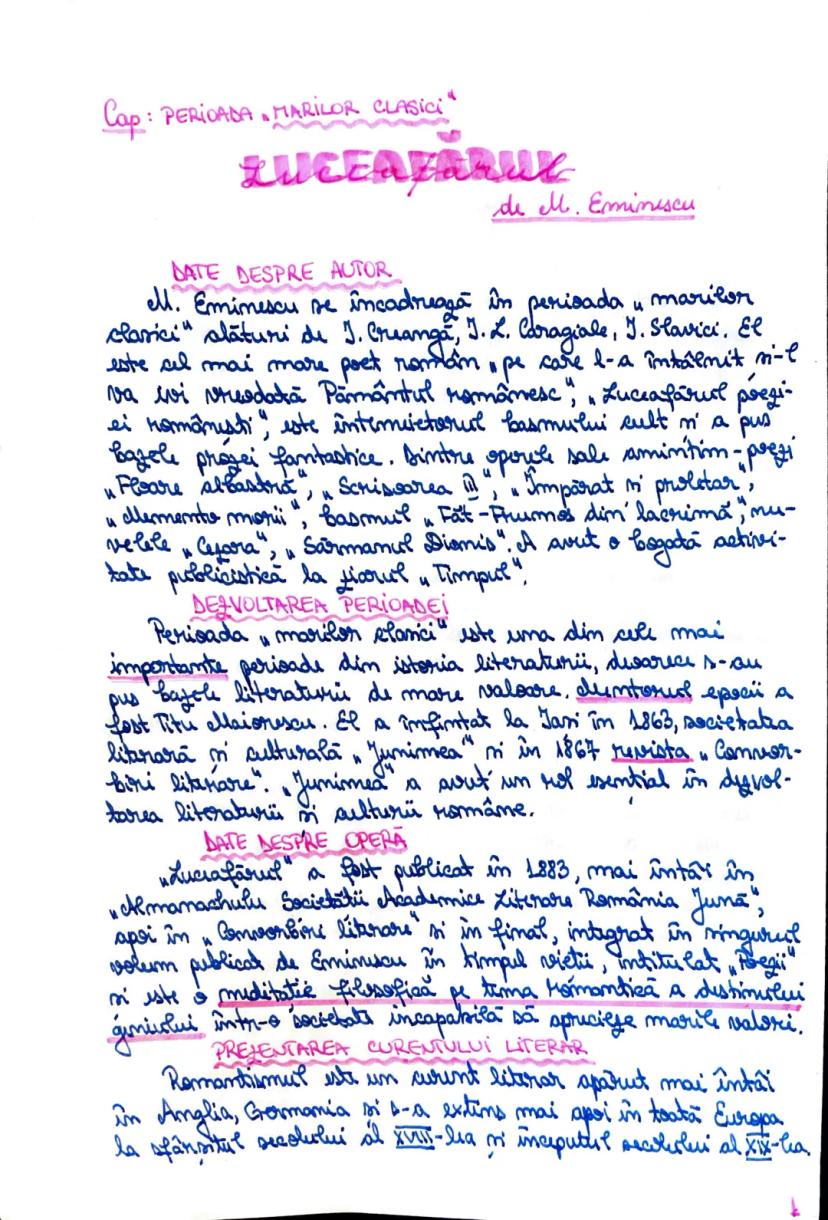 Cap: PERIOADA „MARILOR CLASICI"
LUCEAFĂRUL
de M. Eminescu
DATE DESPRE AUTOR
M. Eminescu se încadrează în perioada „marilor
clasici" alături de I. Creangă, I. L. Caragiale, I. Slavici. El
este cel mai mare poet român „pe care l-a întâlnit și-l
va ivi vreodată Pământul românesc", „Luceafărul poezi-
ei românești", este întemeietorul basmului cult și a pus
bazele prozei fantastice. Dintre operele sale amintim - poezi
„Floare albastră", „Scrisoarea III", „Împărat și proletar",
„Memento morii", basmul „Făt-Frumos din lacrimă", nu-
velele „Cezara", „Sărmanul Dionis". A avut o bogată activi-
tate publicistică la ziarul „Timpul".
DEZVOLTAREA PERIOADEI
Perioada „marilor clasici" este una din cele mai
importante perioade din istoria literaturii, deoarece s-au
pus bazele literaturii de mare valoare. Mentorul epocii a
fost Titu Maiorescu. El a înființat la Iași în 1863, societatea
literară și culturală „Junimea" și în 1867 revista „Convor-
biri literare". „Junimea" a avut un rol esențial în dezvol-
tarea literaturii și culturii române.
DATE DESPRE OPERĂ
„Luceafărul" a fost publicat în 1883, mai întâi în
„Almanachulu Societății Academice Literare România Jună",
apoi în „Convorbiri literare" si în final, integrat în singurul
volum publicat de Eminescu în timpul vieții, intitulat „Poezii"
și este o meditație filosofică pe tema romantică a destinului
geniului într-o societate incapabilă să aprecieze marile valori.
PREZENTAREA CURENTULUI LITERAR
Romantismul este un curent literar apărut mai întâi
în Anglia, Germania si s-a extins mai apoi în toată Europa
la sfârșitul secolului al XVIII-lea și începutul secolului al XIX-lea